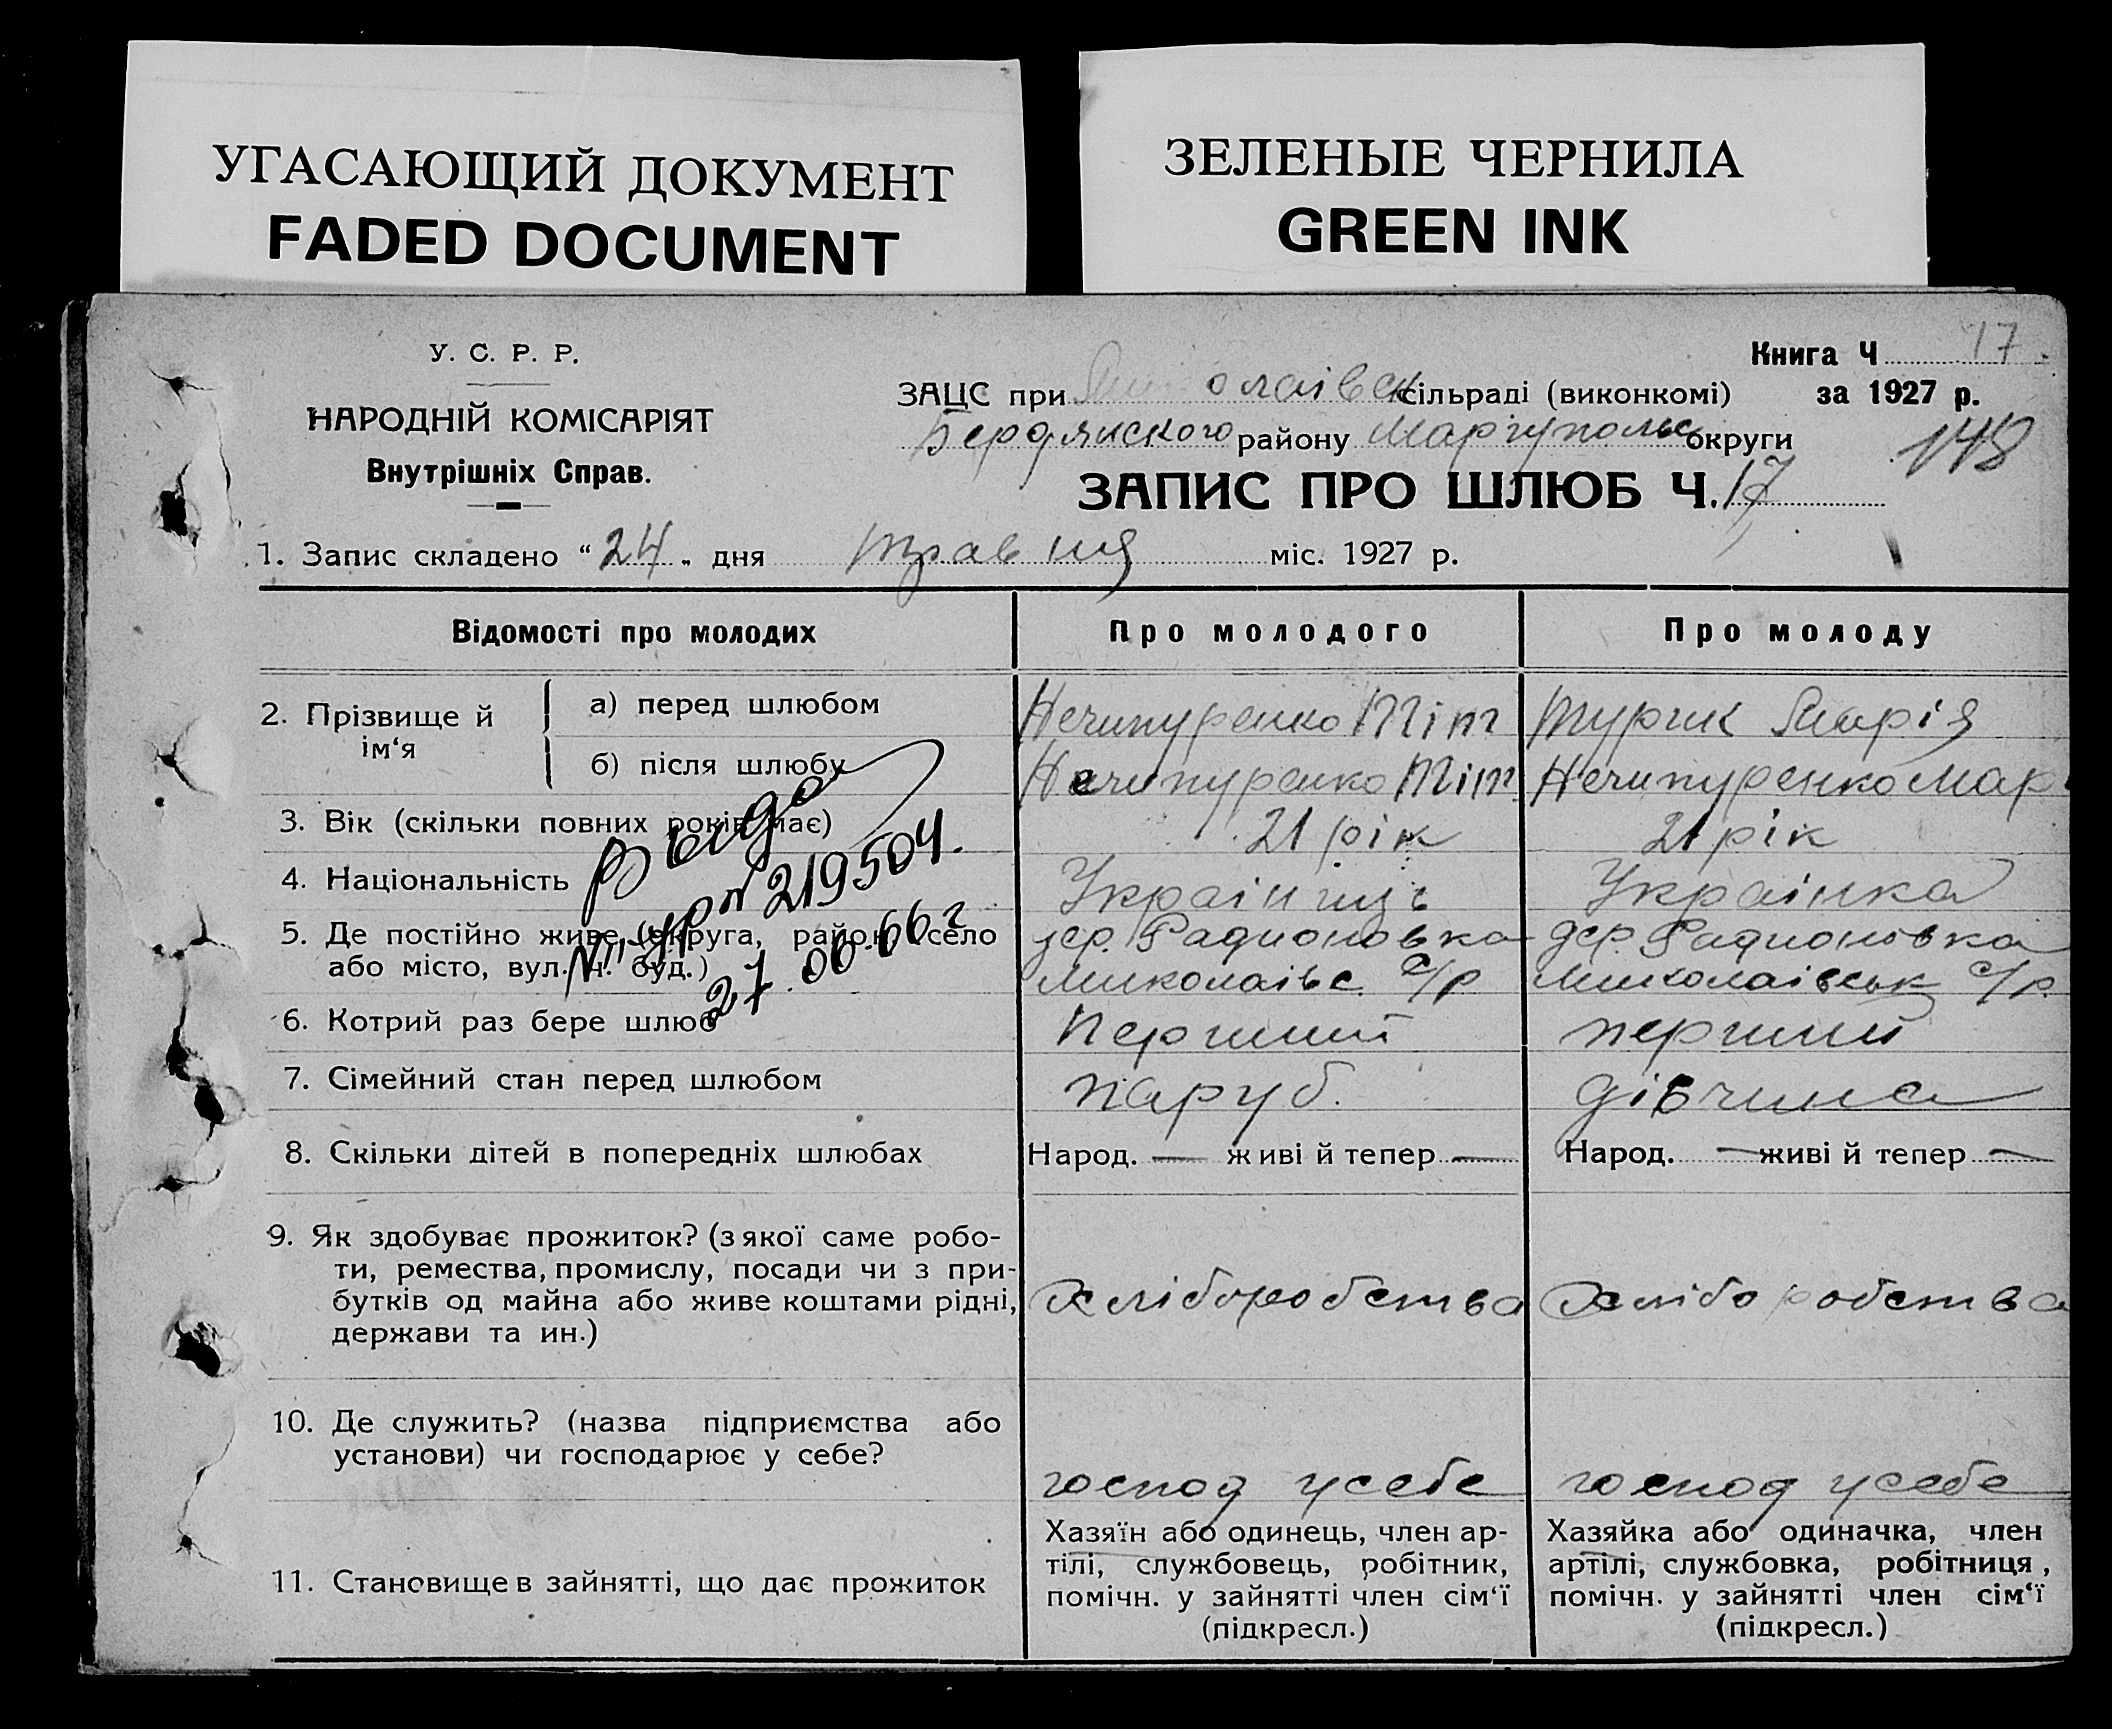 УГАСАЮЩИЙ ДОКУМЕНТ
FADED DOCUMENT
ЗЕЛЕНЫЕ ЧЕРНИЛА
GREEN INK
У. С. Р. Р.
НАРОДНІЙ КОМІСАРІЯТ
Внутрішніх Справ.
Книга Ч 17
ЗАЦС при Миколаівск сільраді (виконкомі) за 1927 р.
Бердянского району Маріупольс округи
148
ЗАПИС ПРО ШЛЮБ Ч. 17
1. Запис складено "24" дня травня міс. 1927 р.
Відомості про молодих Про молодого Про молоду
2. Прізвище й ім'я
а) перед шлюбом Нечипуренко Тіт Турик Марія
б) після шлюбу Нечипуренко Тіт Нечипуренко Мар
3. Вік (скільки повних років має) 21 рік 21 рік
4. Національність Украінець Украінка
5. Де постійно живе (округа, район, село дер. Радионовка дер. Радионовка
або місто, вул. ч. буд.) Миколаівс с/р Миколаівськ с/р
6. Котрий раз бере шлюб Перший перший
7. Сімейний стан перед шлюбом паруб. дівчина
8. Скільки дітей в попередніх шлюбах Народ. — живі й тепер — Народ. — живі й тепер —
9. Як здобуває прожиток? (з якої саме робо-
ти, ремества, промислу, посади чи з при-
бутків од майна або живе коштами рідні, хліборобства хліборобства
держави та ин.)
10. Де служить? (назва підприємства або
установи) чи господарює у себе?
господ у себе господ у себе
11. Становище в зайнятті, що дає прожиток
Хазяїн або одинець, член ар-
тілі, службовець, робітник,
помічн. у зайнятті член сім'ї
(підкресл.)
Хазяйка або одиначка, член
артілі, службовка, робітниця,
помічн. у зайнятті член сім'ї
(підкресл.)
219504.
27.06.66 г